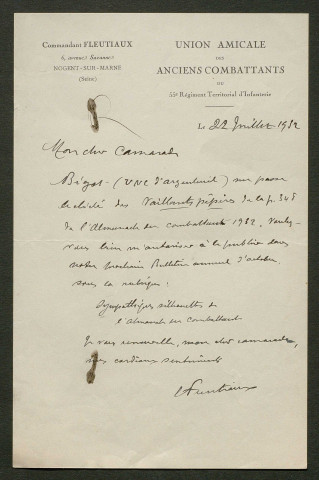 Commandant FLEUTIAUX
6, avenue Suzanne
NOGENT-SUR-MARNE
(Seine)
UNION AMICALE
DES
ANCIENS COMBATTANTS
DU
55e Régiment Territorial d'Infanterie
Le 22 Juillet 1932
Mon cher Camarade
Bizot - (UNC d'argenteuil) me passe
le cliché des Vaillants pépères de la p. 345
de l'Almanach du combattant 1932. Voulez-
vous bien m'autoriser à le publier dans
notre prochain Bulletin annuel d'octobre
sous la rubrique :
Sympathiques silhouettes de
l'almanach du combattant
Je vous renouvelle, mon cher camarade,
mes cordiaux sentiments
Fleutiaux